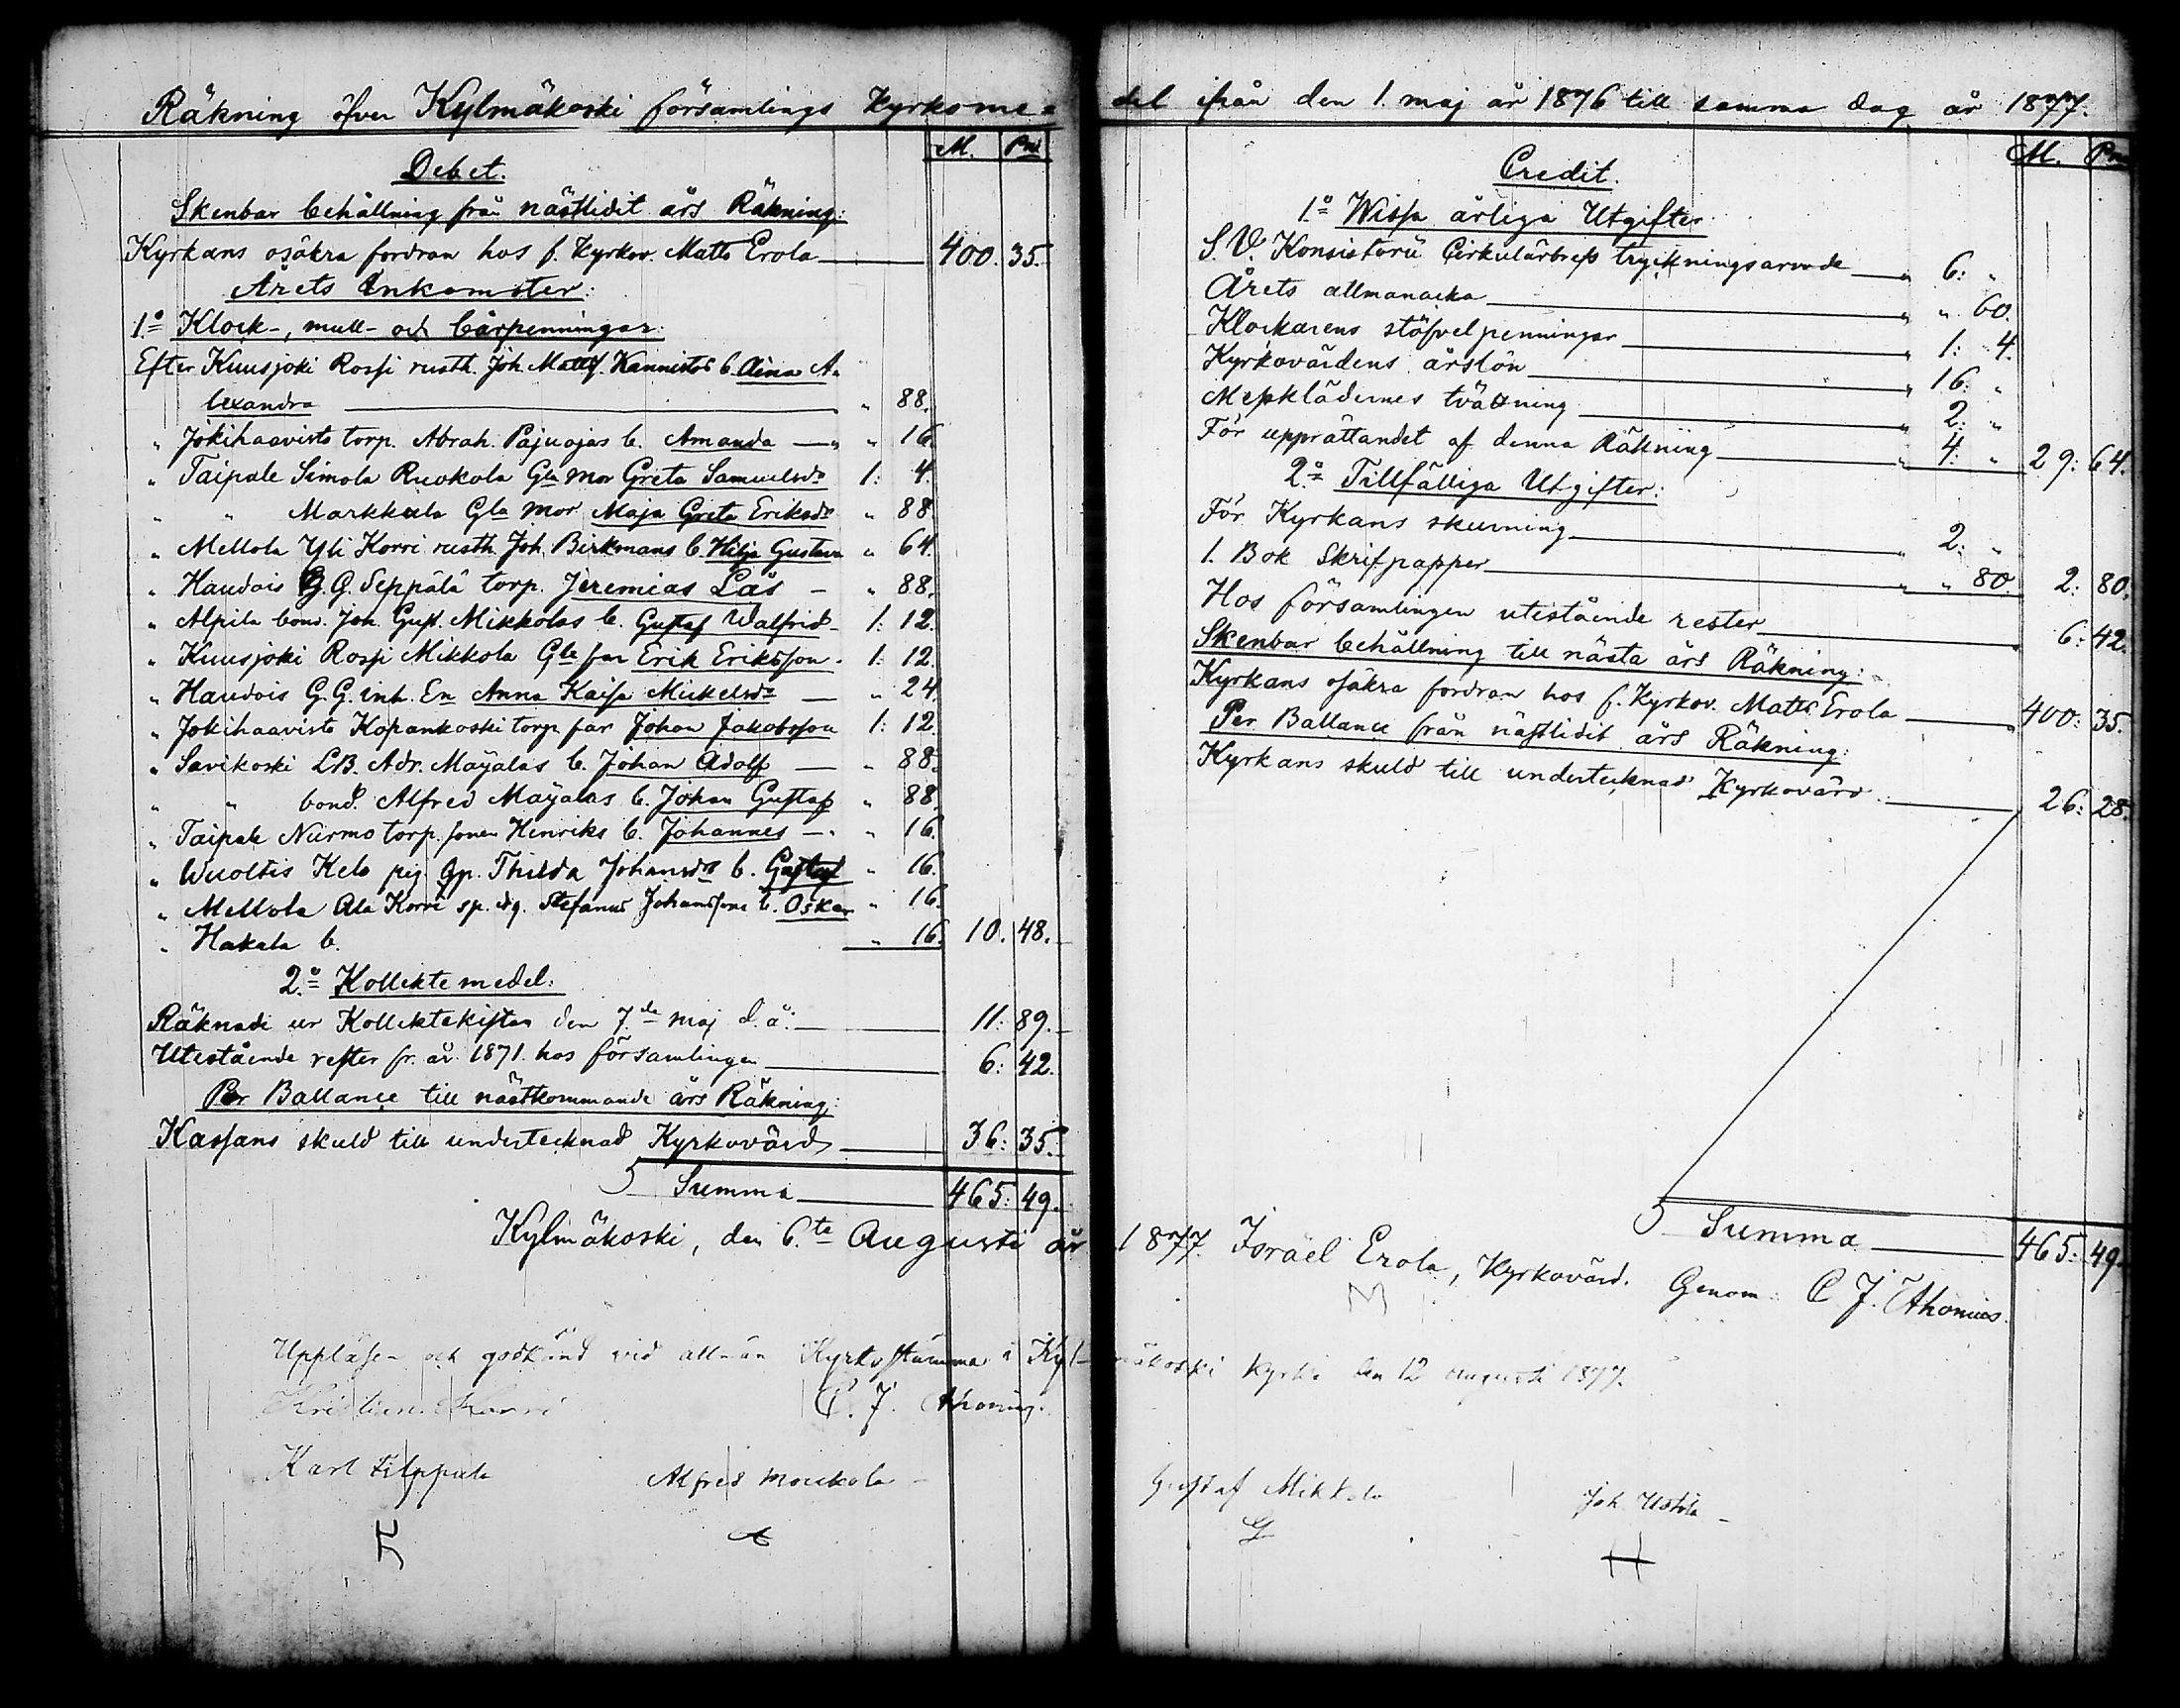 Räkning öfver Kylmäkoski församlings Kyrkome=
M. Pni
Debet.
Skenbar behållning från nästlidit års Räkning:
Kyrkans osäkra fordran hos f. Kyrkov. Matts Erola 400. 35.
Årets Inkomster:
1:o Klock-, mull- och bårpenningar:
Efter Kuusjoki Rossi rusth. Joh. Mattss. Kannistos b. Aina A=
lexandra " 88.
" Jokihaavisto torp. Abrah. Pajuojas b. Amanda " 16.
" Taipale Simola Ruokola Gla mor Greta Samuelsdr 1: 4.
" " Markkula Gla mor Maja Greta Eriksdr " 88.
" Mellola Yli Korri rusth. Joh. Birkmans b. Hilja Gustava " 64.
" Haudois G. G. Seppälä torp. Jeremias Lås " 88.
" Alpila bond. Joh. Gust. Mikkolas b. Gustaf Walfrid 1: 12.
" Kuusjoki Rossi Mikkola Gle far Erik Eriksson 1: 12.
" Haudois G.G. inh. En Anna Kaisa Mickelsdr " 24.
" Jokihaavisto Kopankoski torp. far Johan Jakobsson 1: 12.
" Savikoski LB. Adr. Mayalas b. Johan Adolf " 88.
" " bond. Alfred Mayalas b. Johan Gustaf " 88.
" Taipale Nurmo torp. sonen Henriks b. Johannes " 16.
" Wuoltis Kelo pig. Gp. Thilda Johansdr b. Gustaf " 16.
" Mellola Ala Korri sp. dg. Stefanus Johanssons b. Oskar " 16.
" Hakala b. " 16. 10. 48.
2:o Kollektemedel:
Räknade ur Kollektekistan den 7:de maj d. å: 11: 89.
Utestående rester fr. år 1871. hos församlingen 6: 42.
Per Ballance till nästkommande års Räkning:
Kassans skuld till undertecknad Kyrkovärd 36: 35.
Summa 465: 49.
Kylmäkoski, den 6:te Augusti år
Uppläsen och godkänd vid allmän Kyrkostämma i Kyl-
C. J. Ahonius.
Karl Filppula Alfred Moukola
del ifrån den 1. maj år 1876 till samma dag år 1877.
M. Pni
Credit.
1:o Wissa årliga Utgifter
S. V. Konsistorii Cirkulärbrefs tryckningsarvode " 6: "
Årets allmanacka " " 60.
Klockarens stöfvelpenningar " 1: 4.
Kyrkovärdens årslön " 16: "
Messklädernes tvättning " 2: "
För upprättandet af denna Räkning " 4: " 29: 64.
2:o Tillfälliga Utgifter:
För Kyrkans skurning " 2: "
1. Bok Skrifpapper " " 80. 2: 80.
Hos församlingen utestående rester 6: 42.
Skenbar behållning till nästa års Räkning:
Kyrkans osäkra fordran hos f. Kyrkov. Matts Erola 400: 35.
Per Ballance från nästlidit års Räkning:
Kyrkans skuld till undertecknad Kyrkovärd 26: 28.
Summa 465: 49.
1877. Israel Erola, Kyrkovärd. Genom: C J. Ahonius.
mäkoski kyrka den 12 augusti 1877.
Gustaf Mikkola Joh. Ustola